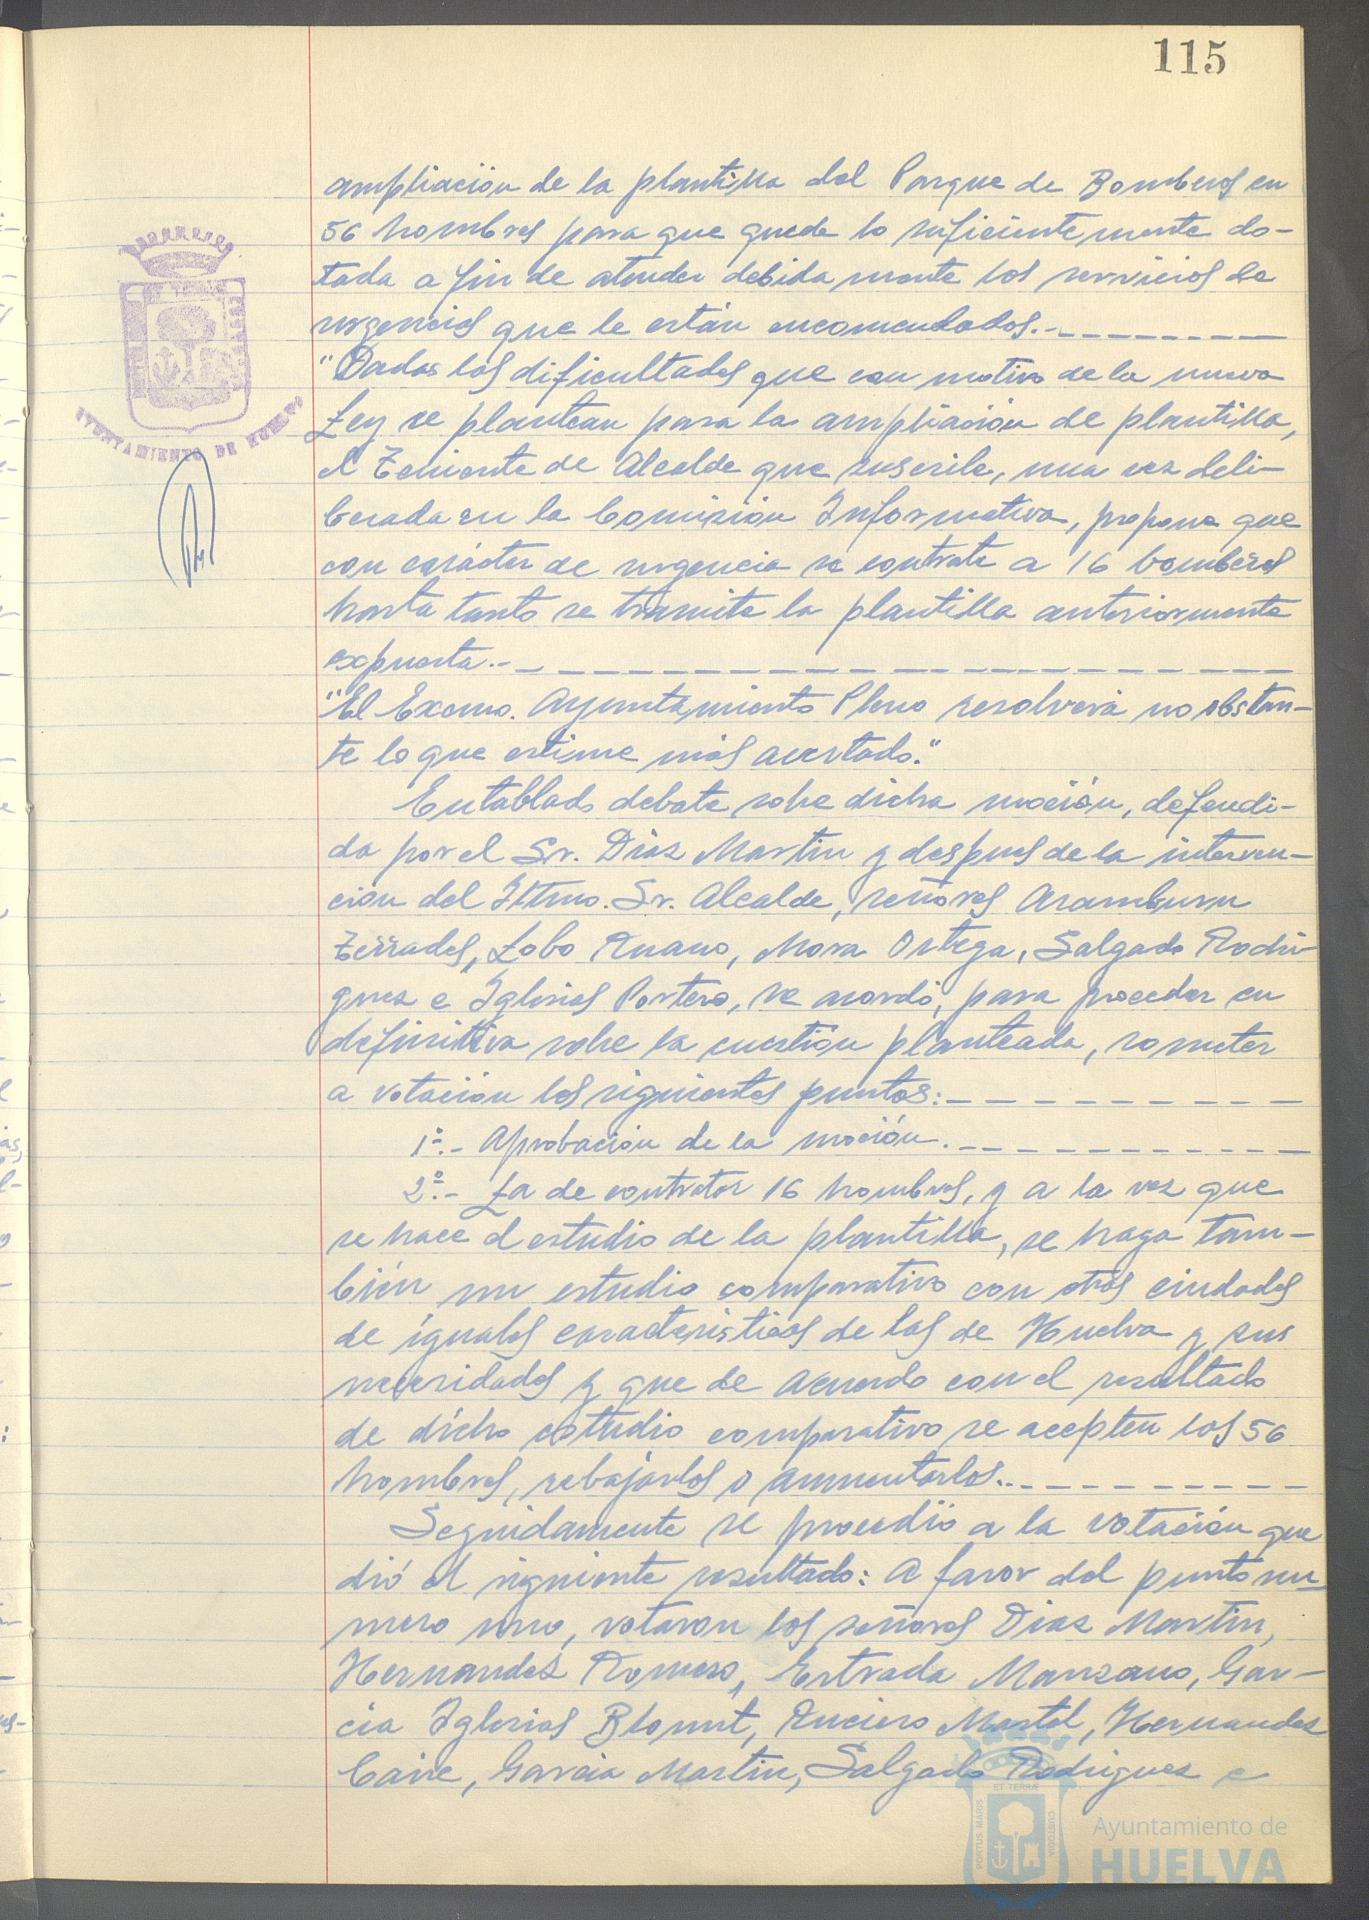 115
ampliación de la plantilla del Parque de Bomberos en
56 hombres para que quede lo suficientemente do-
tada a fin de atender debidamente los servicios de
urgencias que le están encomendados.-
"Dadas las dificultades que con motivo de la nueva
Ley se plantean para la ampliación de plantilla,
el Teniente de Alcalde que suscribe, una vez deli-
berada en la Comisión Informativa, propone que
con carácter de urgencia se contrate a 16 bomberos
hasta tanto se tramite la plantilla anteriormente
expuesta.-
"El Excmo. Ayuntamiento Pleno resolverá no obstan-
te lo que estime más acertado."
Entablado debate sobre dicha moción, defendi-
da por el Sr. Diaz Martin y despues de la interven-
ción del Iltmo. Sr. Alcalde, señores Aramburu
Terrades, Lobo Ruano, Mora Ortega, Salgado Rodri-
guez e Iglesias Portero, se acordó, para proceder en
definitiva sobre la cuestión planteada, someter
a votación los siguientes puntos:-
1º.- Aprobación de la moción.-
2º.- La de contratar 16 hombres, y a la vez que
se hace el estudio de la plantilla, se haga tam-
bién un estudio comparativo con otras ciudades
de iguales caracteristicas de las de Huelva y sus
necesidades y que de acuerdo con el resultado
de dicho estudio comparativo se acepten los 56
hombres, rebajarlos o aumentarlos.-
Seguidamente se procedió a la votación que
dió el siguiente resultado: A favor del punto nú-
mero uno, votaron los señores Diaz Martin,
Hernandez Romero, Estrada Manzano, Gar-
cia Iglesias Blount, Ruciero Martel, Hernandez
Caire, Garcia Martin, Salgado Rodriguez e
AYUNTAMIENTO DE HUELVA
PORTUS MARIS
ET TERRAE
CUSTODIA
Ayuntamiento de
HUELVA